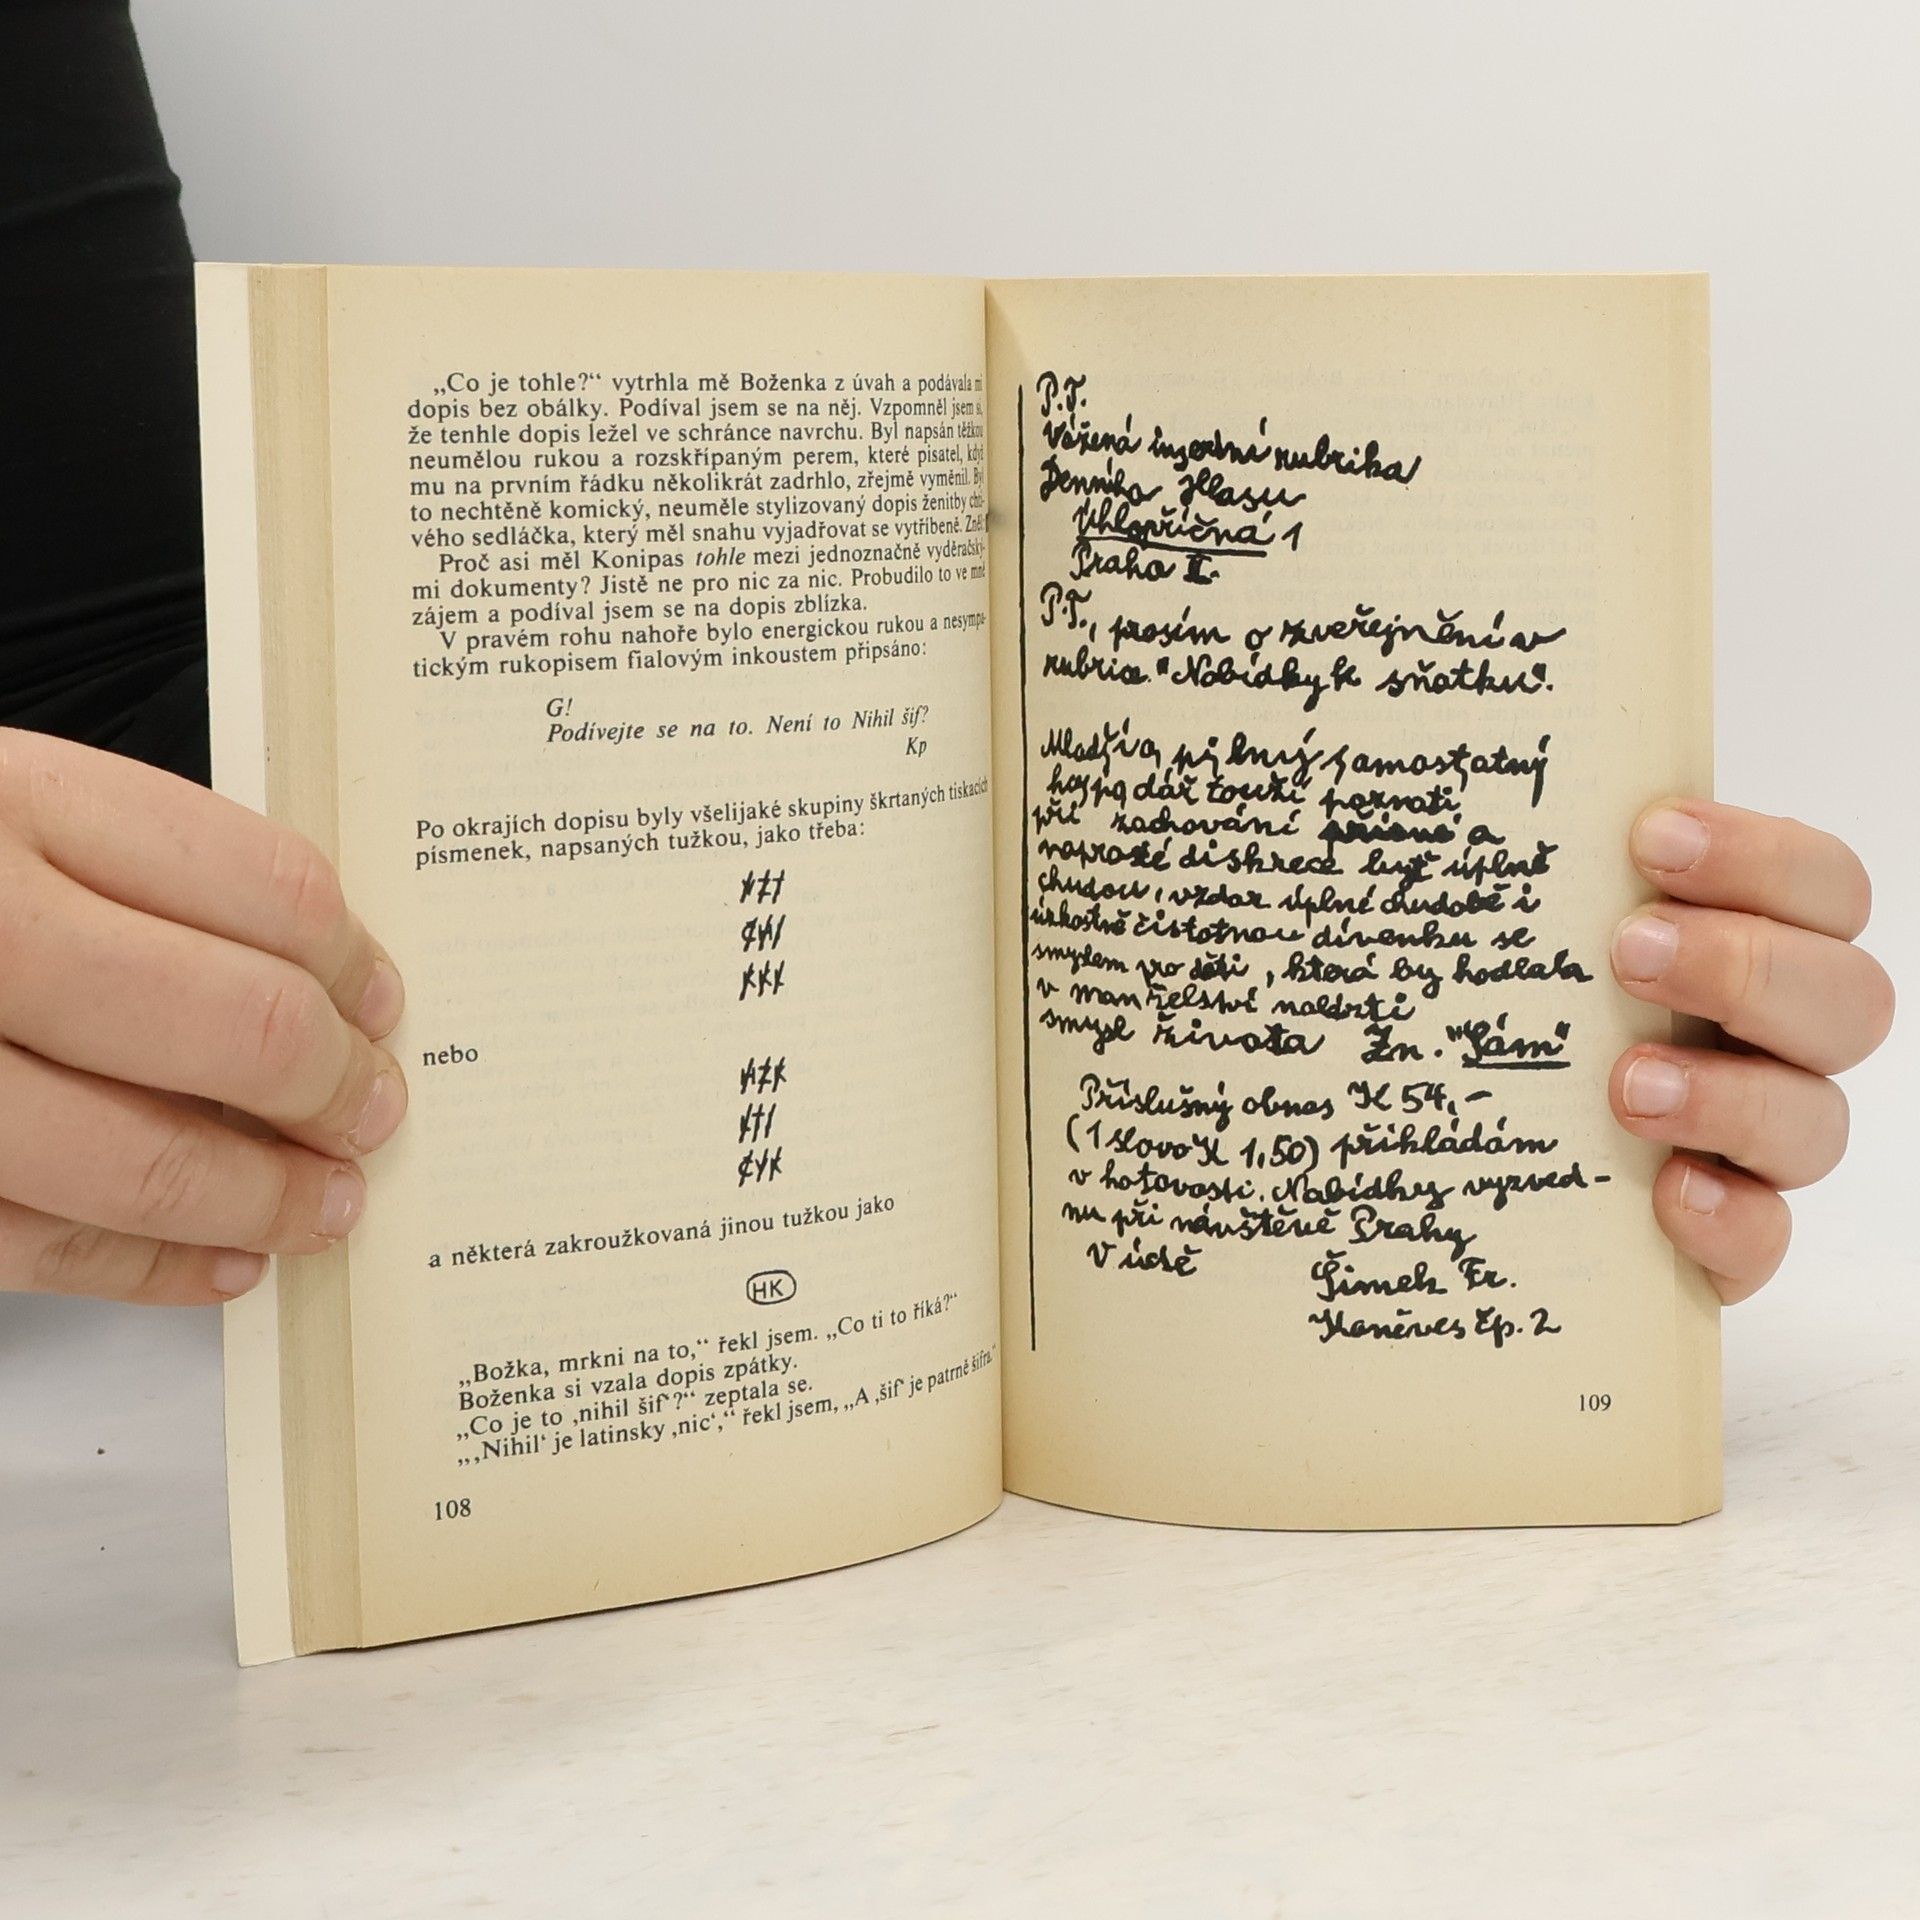 „Co je tohle?“ vytrhla mě Boženka z úvah a podávala mi
dopis bez obálky. Podíval jsem se na něj. Vzpomněl jsem si,
že tenhle dopis ležel ve schránce navrchu. Byl napsán těžkou
neumělou rukou a rozskřípaným perem, které pisatel, když
mu na prvním řádku několikrát zadrhlo, zřejmě vyměnil. Byl
to nechtěně komický, neuměle stylizovaný dopis ženitby chti-
vého sedláčka, který měl snahu vyjadřovat se vytříbeně. Zněl:
Proč asi měl Konipas tohle mezi jednoznačně vyděračský-
mi dokumenty? Jistě ne pro nic za nic. Probudilo to ve mně
zájem a podíval jsem se na dopis zblízka.
V pravém rohu nahoře bylo energickou rukou a nesympa-
tickým rukopisem fialovým inkoustem připsáno:
G!
Podívejte se na to. Není to Nihil šif?
Kp
Po okrajích dopisu byly všelijaké skupiny škrtaných tiskacích
písmenek, napsaných tužkou, jako třeba:
nebo
a některá zakroužkovaná jinou tužkou jako
HK
„Božka, mrkni na to,“ řekl jsem. „Co ti to říká?“
Boženka si vzala dopis zpátky.
„Co je to ‚nihil šif‘?“ zeptala se.
„‚Nihil‘ je latinsky ‚nic‘,“ řekl jsem, „A ‚šif‘ je patrně šifra.“
108
P.T.
Vážená inzertní rubrika
Denního Hlasu
Úhlopříčná 1
Praha II.
P.T., prosím o zveřejnění v
rubrice "Nabídky k sňatku".
Mladší a pilný samostatný
hospodář touží poznati
při zachování přísné a
naprosté diskrece byť úplně
chudou, vzdor úplné chudobě i
úzkostně čistotnou dívenku se
smyslem pro děti, která by hodlala
v manželství nalézti
smysl života Zn. "Sám"
Příslušný obnos K 54,-
(1 slovo K 1,50) přikládám
v hotovosti. Nabídky vyzved-
nu při návštěvě Prahy
V úctě
Šimek Fr.
Koněves čp. 2
109